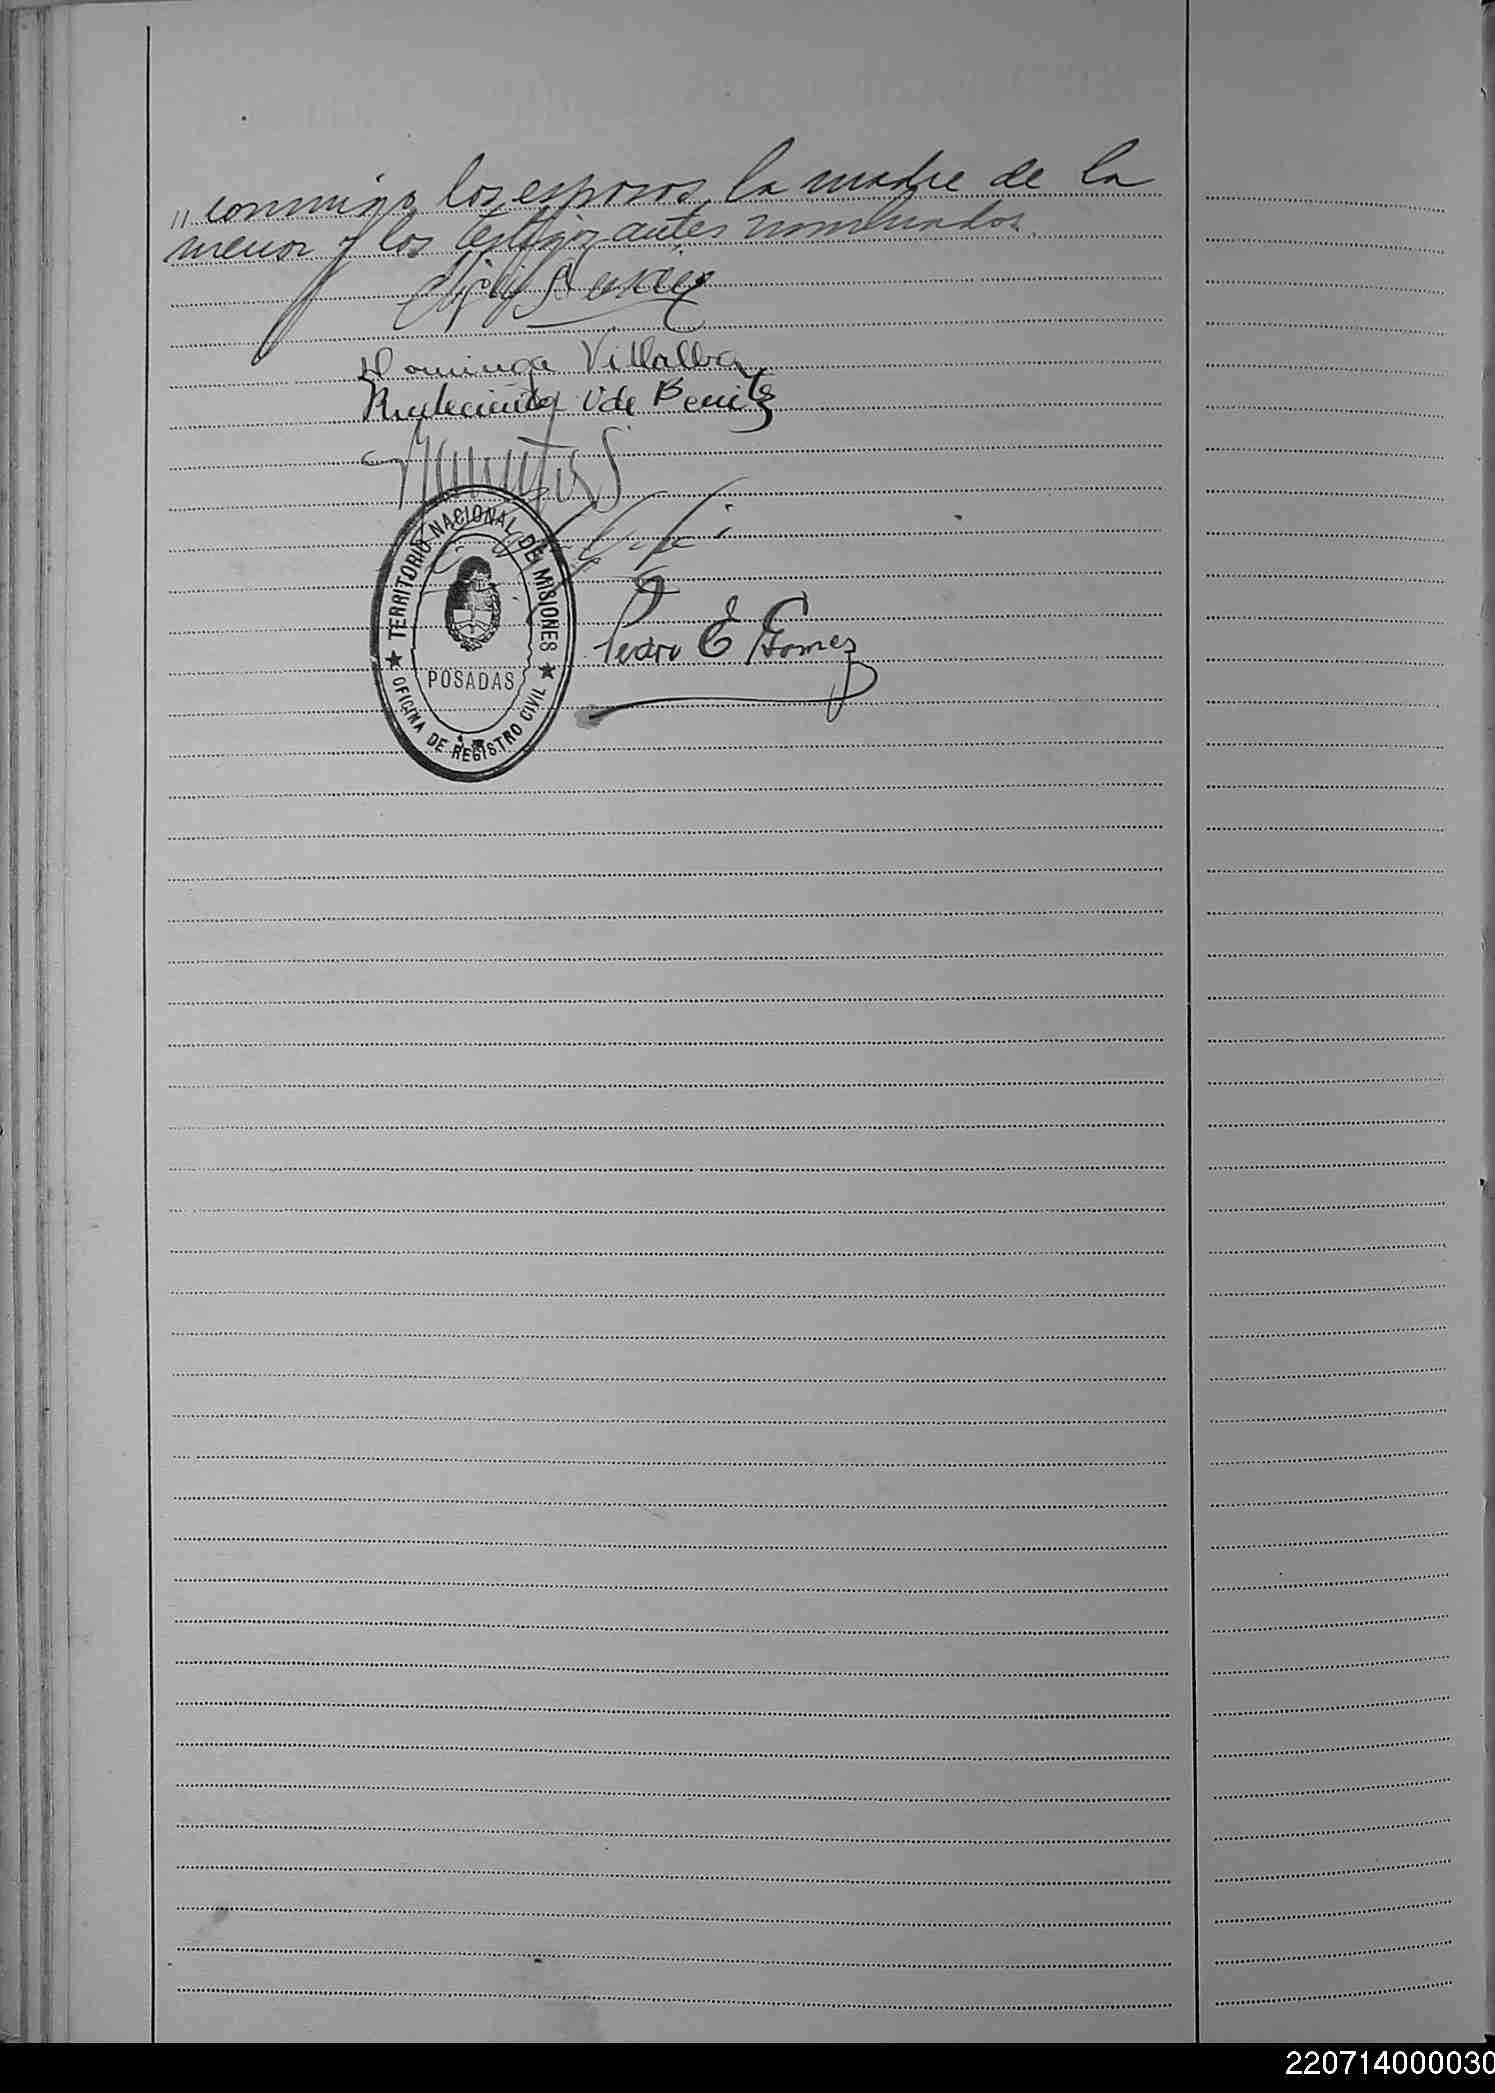 " conmigo los esposos, la madre de la
menor y los testigos antes nombrados.
Dominga Villalba
V de Benitez
TERRITORIO NACIONAL DE MISIONES
POSADAS
OFICINA DE REGISTRO CIVIL
Pedro E Gomez
220714000030